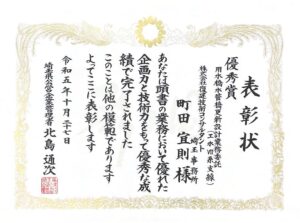 表彰状
優秀賞
用水橋水管橋更新設計業務委託
(工水四系支線)
株式会社復建技術コンサルタント
埼玉事務所
町田宜則様
あなたは頭書の業務において優れた
企画力と技術力をもって優秀な成
績で完了されました
このことは他の模範であります
よってここに表彰します
令和五年十月二十七日
埼玉県公営企業管理者 北島通次